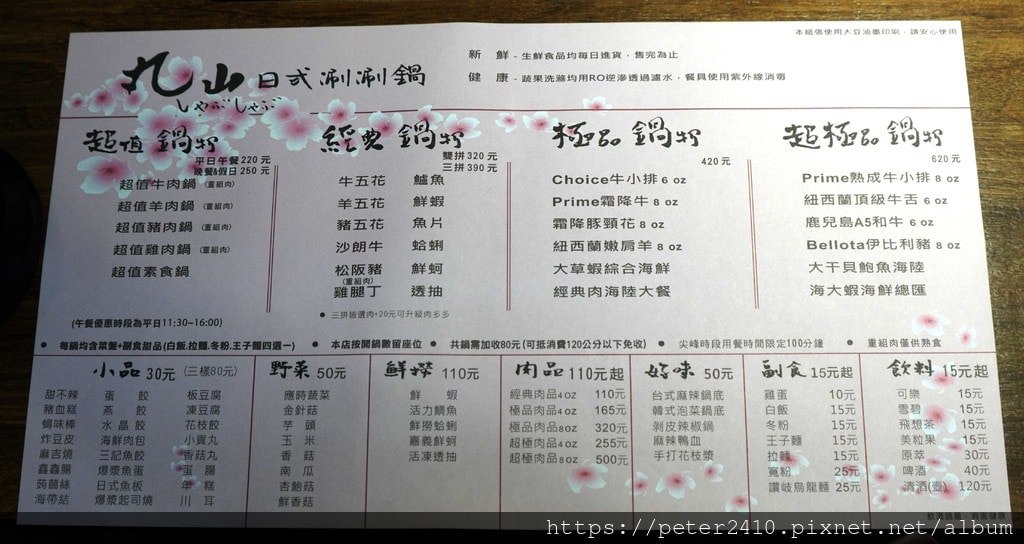 本紙張使用大豆油墨印刷，請安心使用
丸山日式涮涮鍋
しゃぶしゃぶ
新 鮮 - 生鮮食品均每日進貨，售完為止
健 康 - 蔬果洗滌均用RO逆滲透過濾水，餐具使用紫外線消毒
超值鍋物
平日午餐 220 元
晚餐&假日 250 元
超值牛肉鍋 (重組肉)
超值羊肉鍋 (重組肉)
超值豬肉鍋 (重組肉)
超值雞肉鍋 (重組肉)
超值素食鍋
(午餐優惠時段為平日11:30~16:00)
經典鍋物
雙拼 320 元
三拼 390 元
牛五花 鱸魚
羊五花 鮮蝦
豬五花 魚片
沙朗牛 蛤蜊
松阪豬 鮮蚵
(重組肉)
雞腿丁 透抽
● 三拼皆選肉+20元可升級肉多多
極品鍋物
420 元
Choice牛小排 6 oz
Prime霜降牛 8 oz
霜降豚頸花 8 oz
紐西蘭嫩肩羊 8 oz
大草蝦綜合海鮮
經典肉海陸大餐
超極品鍋物
620 元
Prime熟成牛小排 8 oz
紐西蘭頂級牛舌 6 oz
鹿兒島A5和牛 6 oz
Bellota伊比利豬 8 oz
大干貝鮑魚海陸
海大蝦海鮮總匯
● 每鍋均含菜盤+副食甜品(白飯.拉麵.冬粉.王子麵四選一) ● 本店按開鍋數留座位 ● 共鍋需加收80元(可抵消費120公分以下免收) ● 尖峰時段用餐時間限定100分鐘 ● 重組肉僅供熟食
小品 30元 (三樣80元)
甜不辣 蛋餃 板豆腐
豬血糕 燕餃 凍豆腐
蟳味棒 水晶餃 花枝餃
炸豆皮 海鮮肉包 小貢丸
麻吉燒 三記魚餃 香菇丸
鑫鑫腸 爆漿魚蛋 蛋腸
蒟蒻絲 日式魚板 年糕
海帶結 爆漿起司燒 川耳
野菜 50元
應時蔬菜
金針菇
芋頭
玉米
香菇
南瓜
杏鮑菇
鮮香菇
鮮撈 110元
鮮蝦
活力鯛魚
鮮撈蛤蜊
嘉義鮮蚵
活凍透抽
肉品 110元起
經典肉品4 oz 110元
極品肉品4 oz 165元
極品肉品8 oz 320元
超極肉品4 oz 255元
超極肉品8 oz 500元
好味 50元
台式麻辣鍋底
韓式泡菜鍋底
剝皮辣椒鍋
麻辣鴨血
手打花枝漿
副食 15元起
雞蛋 10元
白飯 15元
冬粉 15元
王子麵 15元
拉麵 15元
寬粉 25元
讚岐烏龍麵 25元
飲料 15元起
可樂 15元
雪碧 15元
飛想茶 15元
美粒果 15元
原萃 30元
啤酒 40元
清酒(壺) 120元
飲酒過量，有害健康
https://peter2410.pixnet.net/album